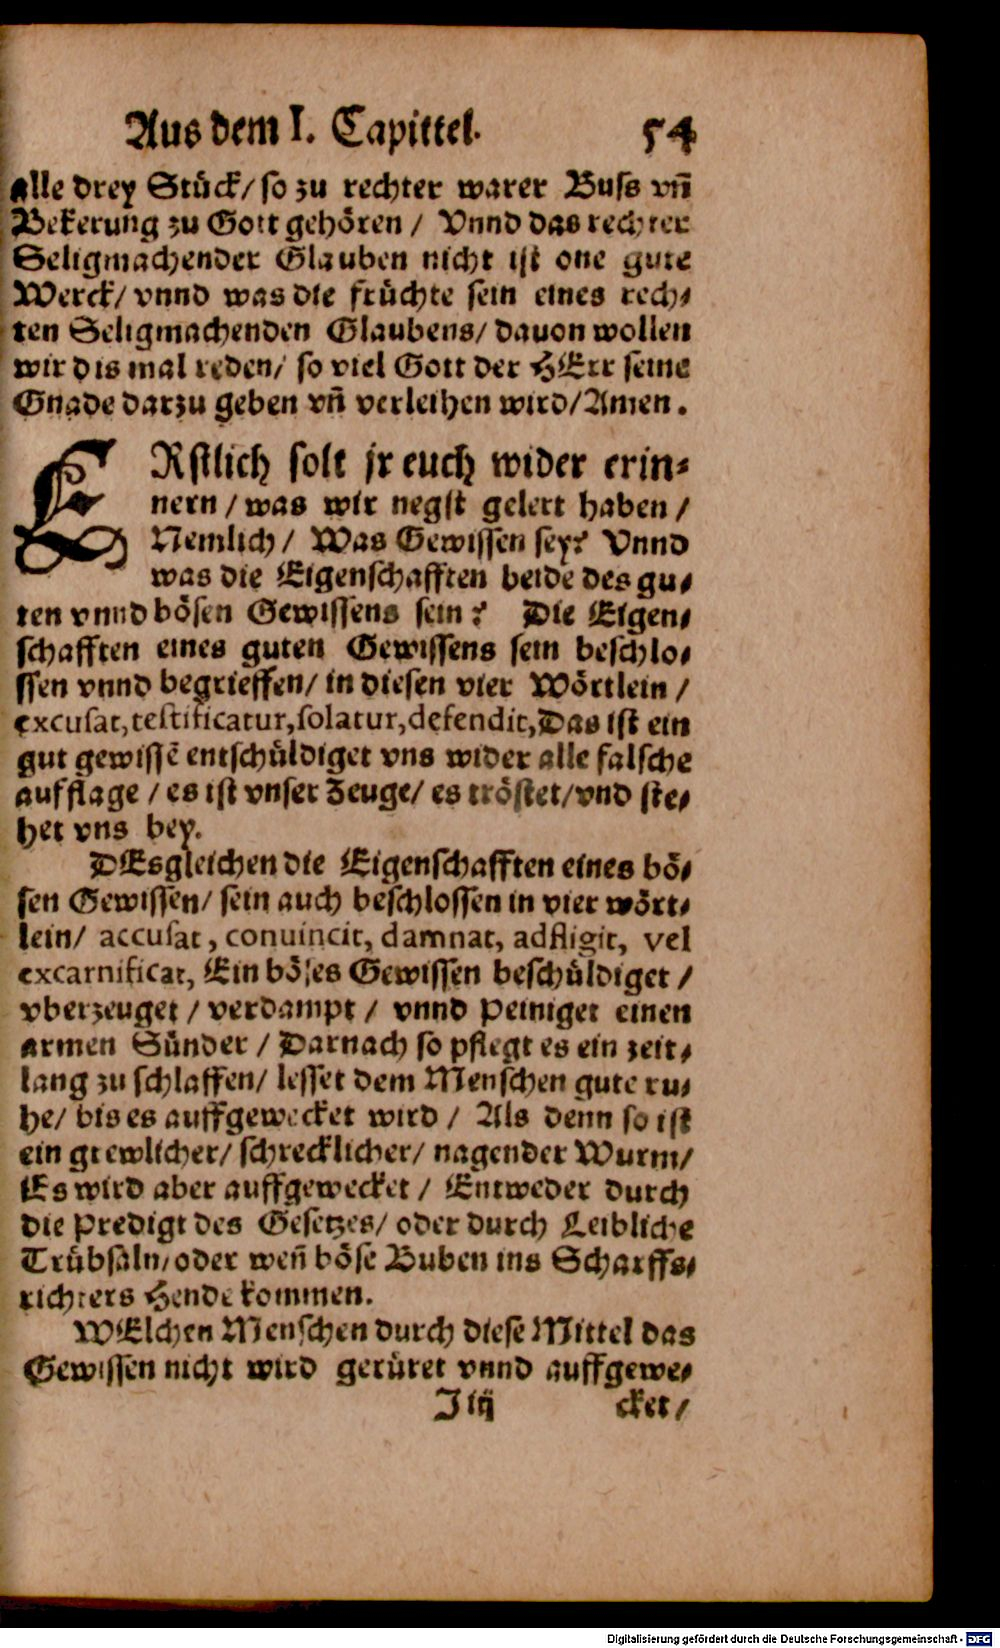 Aus dem I. Capittel. 54
alle drey Stück/ so zu rechter warer Buss vn̄
Bekerung zu Gott gehören / Vnnd das rechter
Seligmachender Glauben nicht ist one gute
Werck/ vnnd was die früchte sein eines rech⸗
ten Seligmachenden Glaubens/ dauon wollen
wir dis mal reden/ so viel Gott der HErr seine
Gnade darzu geben vn̄ verleihen wird/Amen.
ERstlich solt jr euch wider erin⸗
nern / was wir negst gelert haben /
Nemlich / Was Gewissen sey? Vnnd
was die Eigenschafften beide des gu⸗
ten vnnd bösen Gewissens sein? Die Eigen⸗
schafften eines guten Gewissens sein beschlo⸗
ssen vnnd begrieffen/ in diesen vier Wörtlein /
excusat, testificatur, solatur, defendit, Das ist ein
gut gewissē entschüldiget vns wider alle falsche
aufflage / es ist vnser Zeuge/ es tröstet/vnd ste⸗
het vns bey.
DEsgleichen die Eigenschafften eines bö⸗
sen Gewissen/ sein auch beschlossen in vier wört⸗
lein/ accusat, conuincit, damnat, adfligit, vel
excarnificat, Ein böses Gewissen beschüldiget /
vberzeuget / verdampt / vnnd Peiniget einen
armen Sünder / Darnach so pflegt es ein zeit⸗
lang zu schlaffen/ lesset dem Menschen gute ru⸗
he/ bis es auffgewecket wird / Als denn so ist
ein grewlicher/ schrecklicher/ nagender Wurm/
Es wird aber auffgewecket / Entweder durch
die Predigt des Gesetzes/ oder durch Leibliche
Trübsaln/oder wen̄ böse Buben ins Scharffs⸗
richters Hende kommen.
WElchen Menschen durch diese Mittel das
Gewissen nicht wird gerüret vnnd auffgewe⸗
J iij cket /
Digitalisierung gefördert durch die Deutsche Forschungsgemeinschaft - DFG